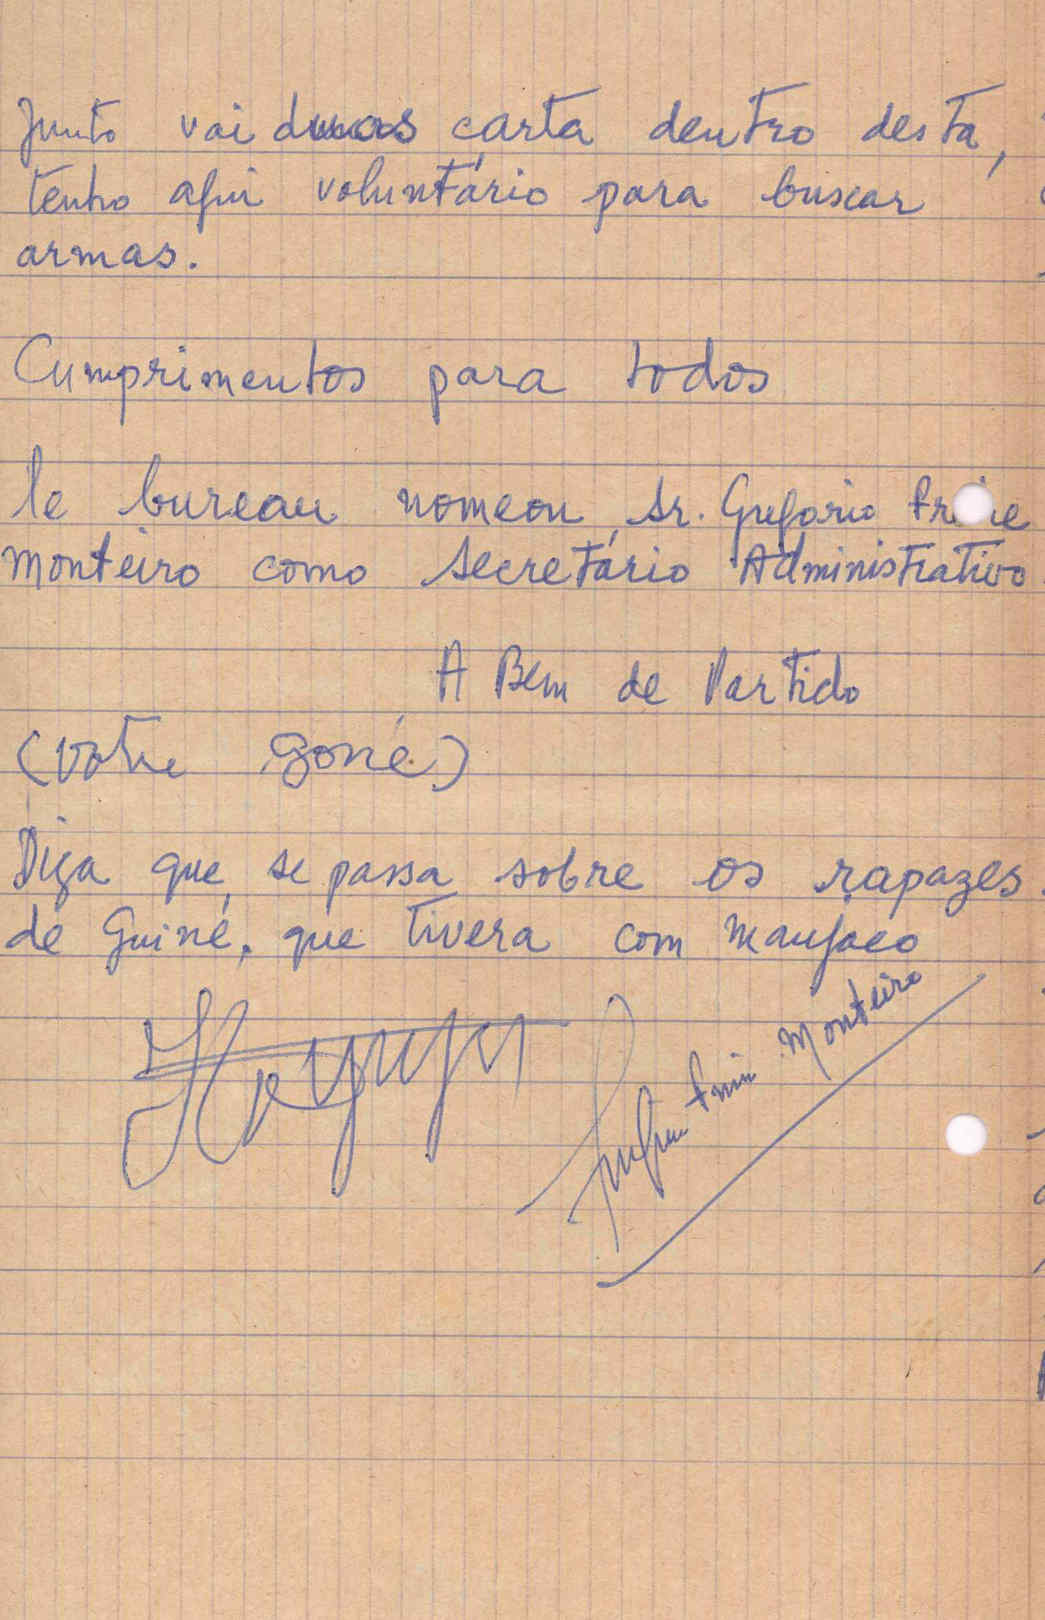 Junto vai duas carta dentro desta,
tenho aqui voluntário para buscar
armas.
Cumprimentos para todos
le bureau nomeou Sr. Gregorio Freire
Monteiro como Secretário Administrativo
A Bem de Partido
(votre gone)
Diga que se passa sobre os rapazes
de Guiné, que tivera com
Monteiro